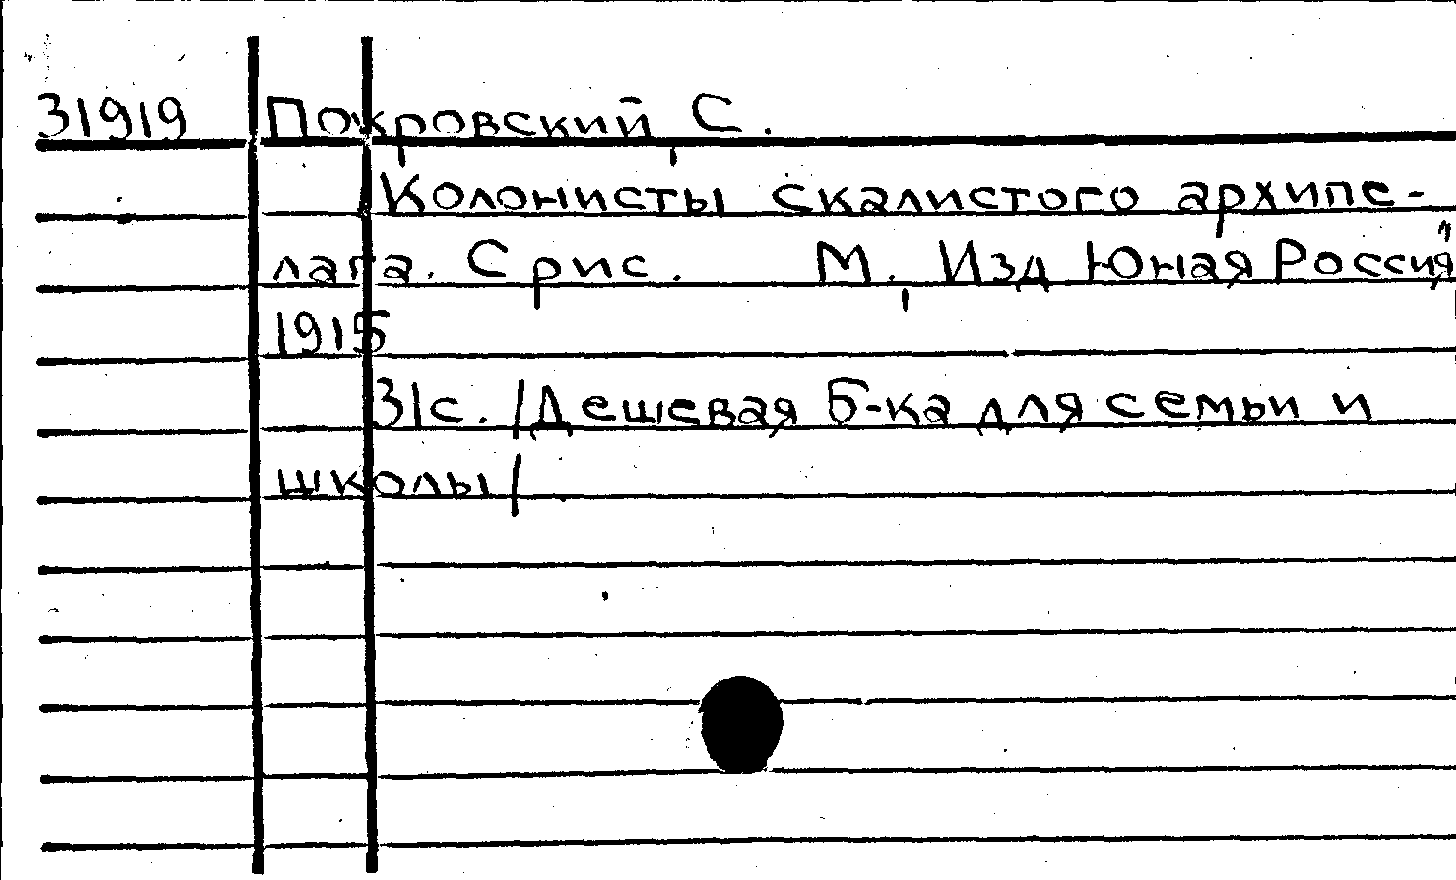 31919 Покровский, С.
Колонисты скалистого архипе-
лага. С рис. М., Изд Юная Россия"
1915
31с. /Дешевая б-ка для семьи и
школы/